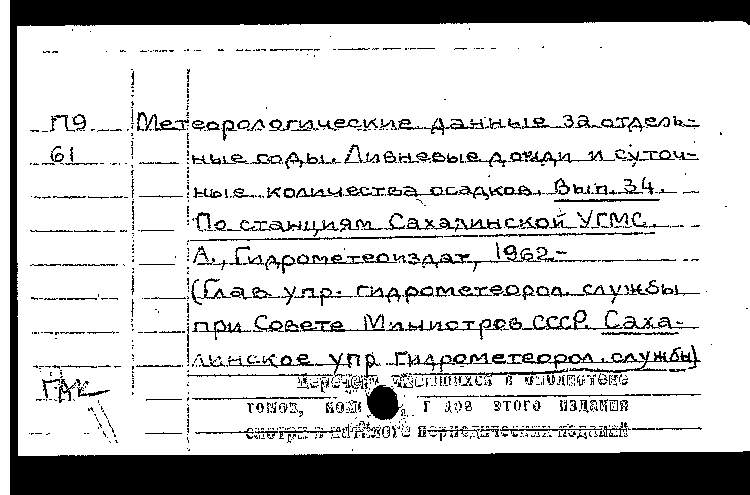 П9 Метеорологические данные за отдель-
61 ные годы. Ливневые дожди и суточ-
ные количества осадков. Вып. 34.
По станциям Сахалинской УГМС.
Л., Гидрометеоиздат, 1962.-
(Глав упр. гидрометеорол. службы
при Совете Министров СССР. Саха-
линское упр гидрометеорол. службы)
имеющихся в библиотеке
томов, годов этого издания
смотри в каталоге периодических изданий